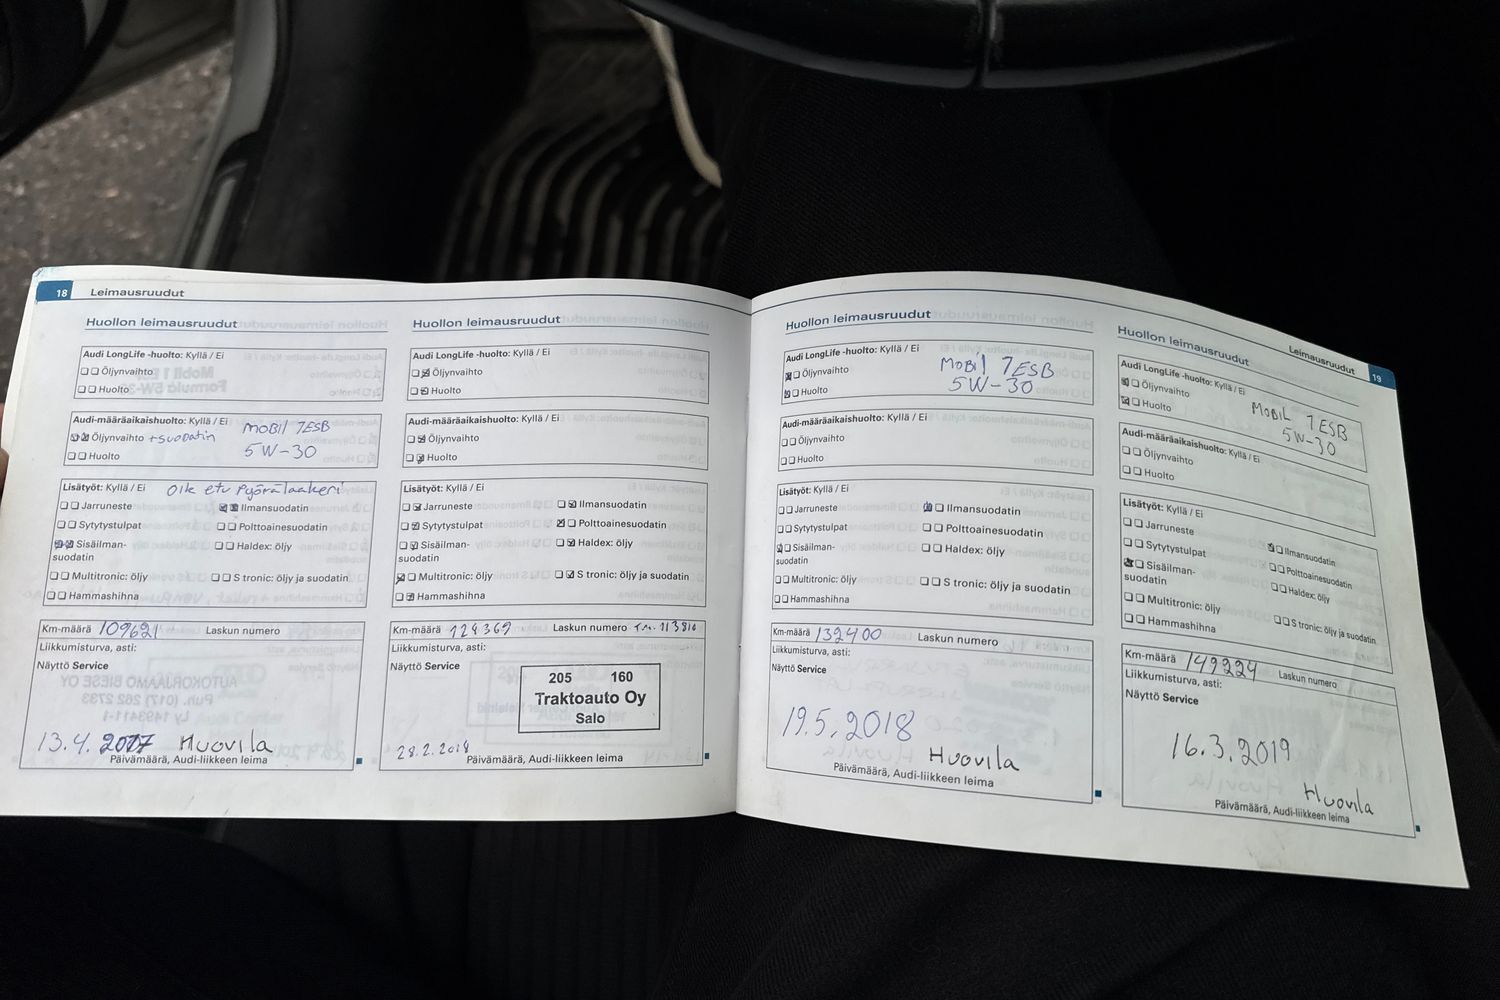 18 Leimausruudut
Huollon leimausruudut
Audi LongLife -huolto: Kyllä / Ei
Öljynvaihto
Huolto
Audi-määräaikaishuolto: Kyllä / Ei
Öljynvaihto +suodatin MOBIL 1ESB
Huolto 5W-30
Lisätyöt: Kyllä / Ei Oik etu pyörälaakeri
Jarruneste Ilmansuodatin
Sytytystulpat Polttoainesuodatin
Sisäilman-
suodatin
Haldex: öljy
Multitronic: öljy S tronic: öljy ja suodatin
Hammashihna
Km-määrä 109621 Laskun numero
Liikkumisturva, asti:
Näyttö Service
13.4.2017 Huovila
Päivämäärä, Audi-liikkeen leima
Huollon leimausruudut
Audi LongLife -huolto: Kyllä / Ei
Öljynvaihto
Huolto
Audi-määräaikaishuolto: Kyllä / Ei
Öljynvaihto
Huolto
Lisätyöt: Kyllä / Ei
Jarruneste Ilmansuodatin
Sytytystulpat Polttoainesuodatin
Sisäilman-
suodatin
Haldex: öljy
Multitronic: öljy S tronic: öljy ja suodatin
Hammashihna
Km-määrä 124369 Laskun numero
Liikkumisturva, asti:
Näyttö Service
205 160
Traktoauto Oy
Salo
28.2.2018
Päivämäärä, Audi-liikkeen leima
Huollon leimausruudut
Audi LongLife -huolto: Kyllä / Ei
Öljynvaihto MOBIL 1ESB
Huolto 5W-30
Audi-määräaikaishuolto: Kyllä / Ei
Öljynvaihto
Huolto
Lisätyöt: Kyllä / Ei
Jarruneste Ilmansuodatin
Sytytystulpat Polttoainesuodatin
Sisäilman-
suodatin
Haldex: öljy
Multitronic: öljy S tronic: öljy ja suodatin
Hammashihna
Km-määrä 132400 Laskun numero
Liikkumisturva, asti:
Näyttö Service
19.5.2018
Huovila
Päivämäärä, Audi-liikkeen leima
Leimausruudut 19
Huollon leimausruudut
Audi LongLife -huolto: Kyllä / Ei
Öljynvaihto MOBIL 1ESB
Huolto 5W-30
Audi-määräaikaishuolto: Kyllä / Ei
Öljynvaihto
Huolto
Lisätyöt: Kyllä / Ei
Jarruneste Ilmansuodatin
Sytytystulpat Polttoainesuodatin
Sisäilman-
suodatin
Haldex: öljy
Multitronic: öljy S tronic: öljy ja suodatin
Hammashihna
Km-määrä 149224 Laskun numero
Liikkumisturva, asti:
Näyttö Service
16.3.2019
Huovila
Päivämäärä, Audi-liikkeen leima